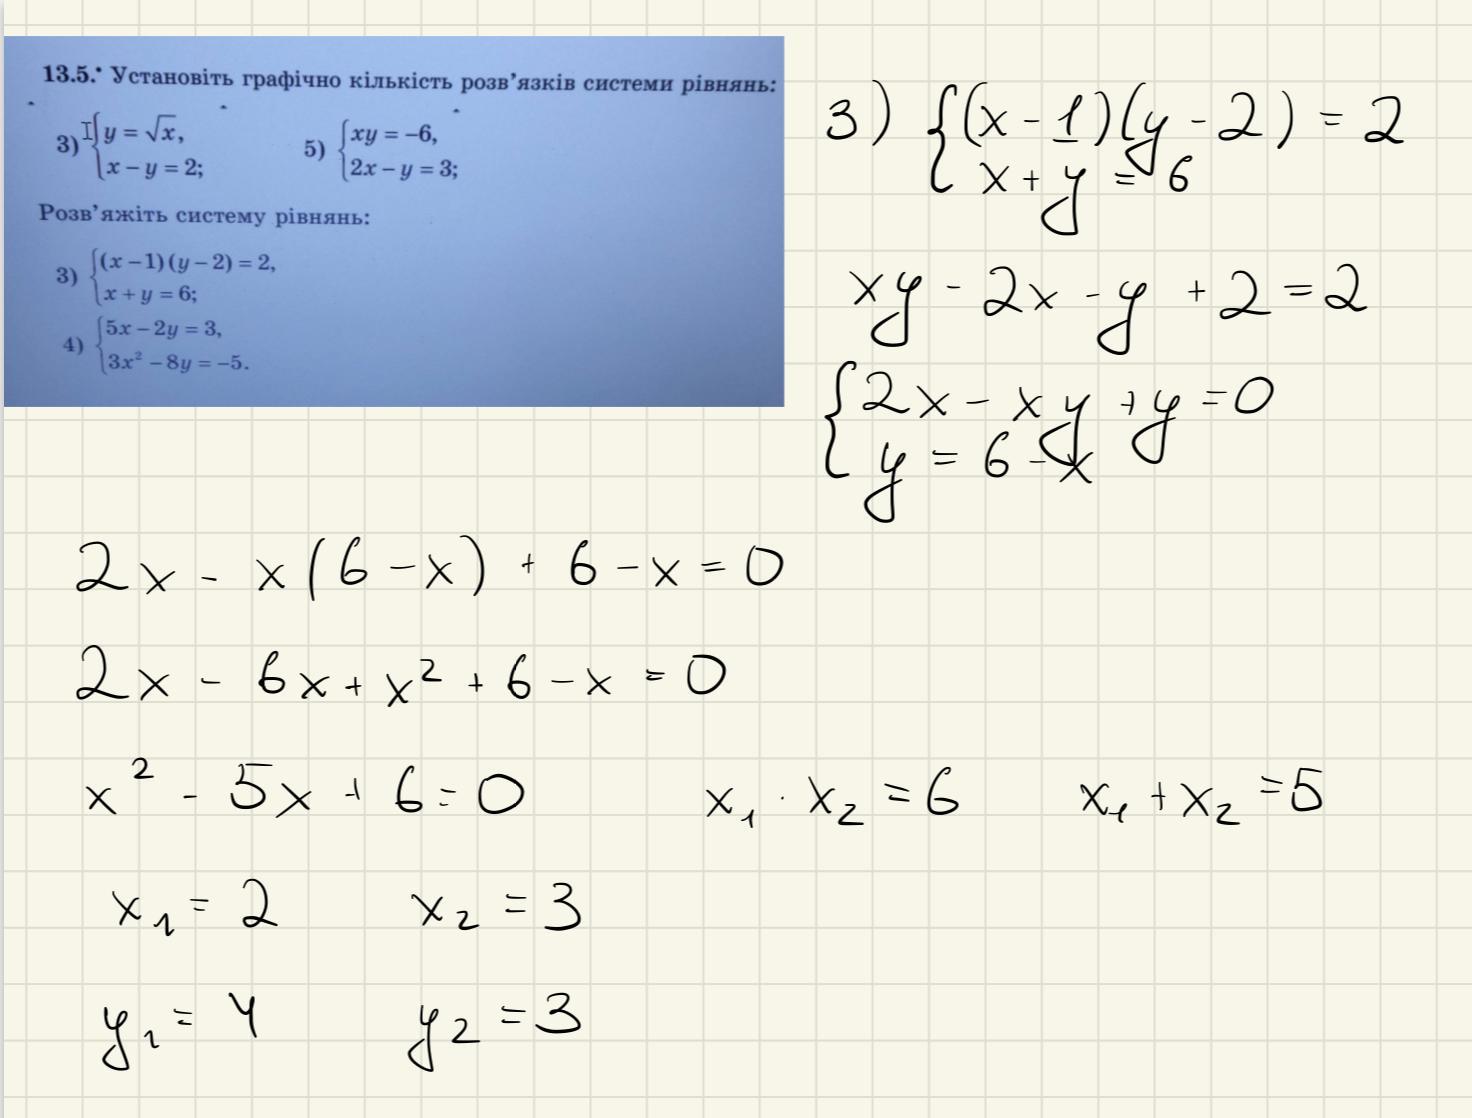 13.5.• Установіть графічно кількість розв’язків системи рівнянь:
3) {y = √x,
x − y = 2;
5) {xy = −6,
2x − y = 3;
Розв’яжіть систему рівнянь:
3) {(x − 1)(y − 2) = 2,
x + y = 6;
4) {5x − 2y = 3,
3x² − 8y = −5.
3) {(x - 1)(y - 2) = 2
x + y = 6
xy - 2x - y + 2 = 2
{2x - xy + y = 0
y = 6 - x
2x - x(6 - x) + 6 - x = 0
2x - 6x + x² + 6 - x = 0
x² - 5x + 6 = 0 x₁ · x₂ = 6 x₁ + x₂ = 5
x₁ = 2 x₂ = 3
y₁ = 4 y₂ = 3